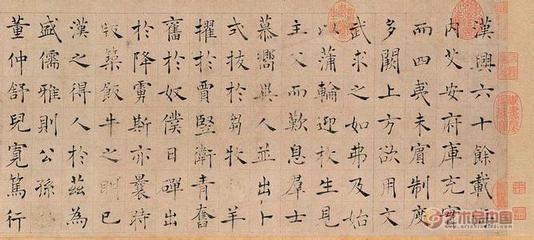 漢興六十餘載
內艾安府庫充實
而四夷未賓制度
多闕上方欲用文
武求之如弗及始
以蒲輪迎枚生見
主父而歎息群士
慕嚮異人並出卜
式拔於芻牧羊
擢於賈豎衛青奮
舊於奴僕日磾出
於降虜斯亦曩時
版築飯牛之朋已
漢之得人於茲為
盛儒雅則公孫
董仲舒兒寬篤行
艺术品中国